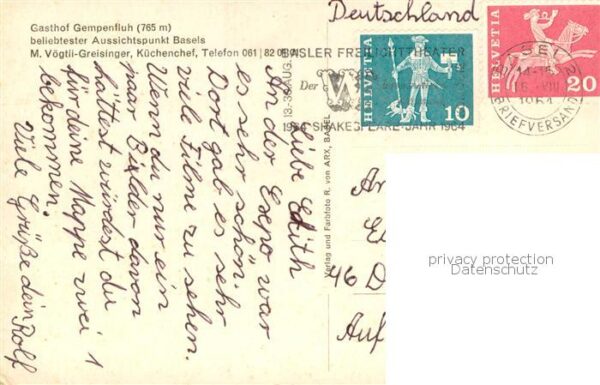 Gasthof Gempenfluh (765 m)
beliebtester Aussichtspunkt Basels
M. Vögtli-Greisinger, Küchenchef, Telefon 061 | 82
Deutschland
BASLER FREILICHTTHEATER
13-30. AUG.
Der
1964 SHAKESPEARE-JAHR 1964
HELVETIA
10
HELVETIA
20
BASEL 2
BRIEFVERSAND
Liebe Edith
An der Expo war
es sehr schön.
Dort gab es sehr
viele Filme zu sehen.
Wenn du nur ein
paar Bilder davon
hättest würdest du
für deine Mappe zwei 1
bekommen.
Viele Grüße dein Rolf
Verlag und Farbfoto R. von ARX, BASEL
46 D
Auf
privacy protection
Datenschutz